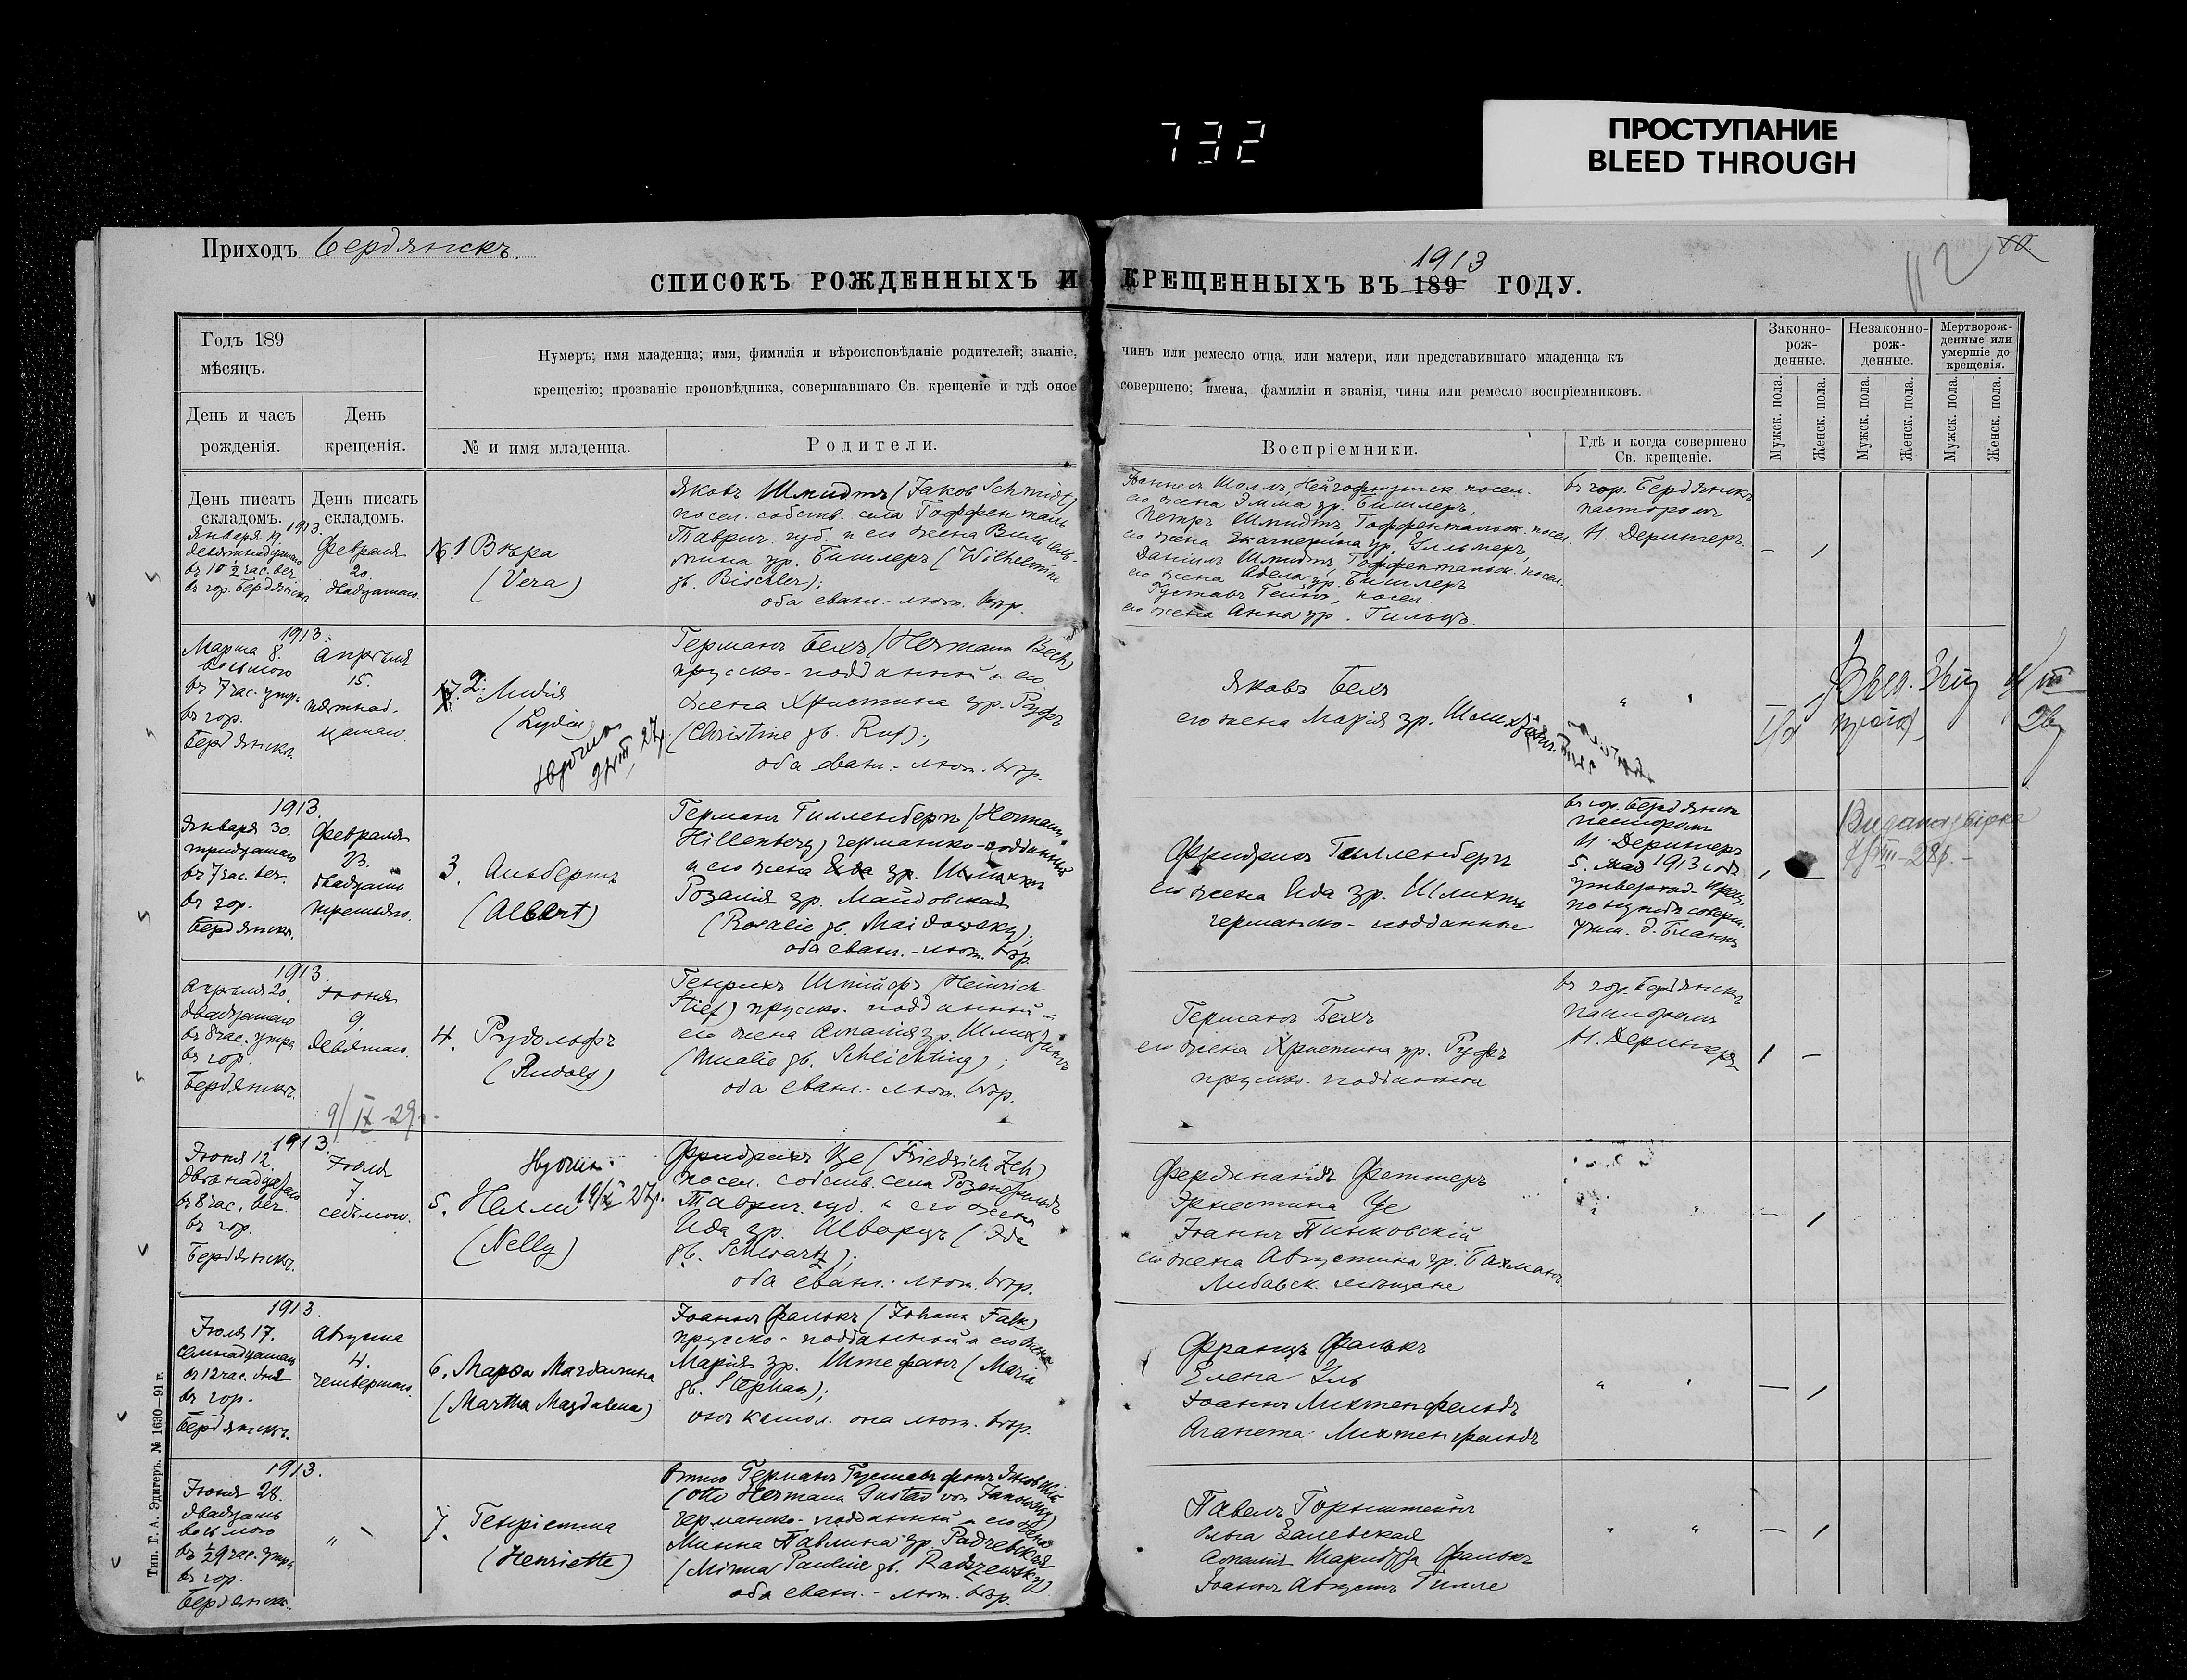 732
ПРОСТУПАНИЕ
BLEED THROUGH
Приходъ Бердянскъ.
112
СПИСОКЪ РОЖДЕННЫХЪ И КРЕЩЕННЫХЪ ВЪ 189 1913 ГОДУ.
Годъ 189
мѣсяцъ.
День и часъ
рожденія.
День
крещенія.
Нумеръ; имя младенца; имя, фимилія и вѣроисповѣданіе родителей; званіе, чинъ или ремесло отца, или матери, или представившаго младенца къ
крещенію; прозваніе проповѣдника, совершавшаго Св. крещеніе и гдѣ оное совершено; имена, фамиліи и званія, чины или ремесло воспріемниковъ.
№ и имя младенца.
Родители.
Воспріемники.
Гдѣ и когда совершено
Св. крещеніе.
Законно-
рож-
денные.
Незаконно-
рож-
денные.
Мертворож-
денные или
умершіе до
крещенія.
Мужск. пола.
Женск. пола.
Мужск. пола.
Женск. пола.
Мужск. пола.
Женск. пола.
День писать
складомъ.
День писать
складомъ.
1913.
Января 19.
девятнадцатаго
въ 10 ½ час. веч.
въ гор. Бердянскѣ
Февраля
20.
двадцатаго.
№ 1 Вѣра
(Vera)
Яковъ Шмидтъ (Jakob Schmidt)
посел. собств. села Гоффенталь
Таврич. губ. и его жена Вильгель-
мина ур. Бишлеръ (Wilhelmine
gb. Bischler);
оба еванг.-лют. вѣр.
посел.
его жена Эмма ур. Бишлеръ,
Петръ Шмидтъ, Гоффентальск. посел.
его жена Екатерина ур. Ульмеръ,
Даніилъ Шмидтъ, Гоффентальск. посел.
его жена Адела ур. Бишлеръ
Густавъ посел.
его жена Анна ур.
въ гор. Бердянскѣ
пасторомъ
И. Дерингеръ.
1913.
Марта 8.
восьмого
въ 7 час. утр.
въ гор.
Бердянскѣ.
Апрѣля
15.
пятнад-
цатаго.
2. Лидія
(Lydia)
Германъ Бехъ (Hermann Bech)
прусско-подданный и его
жена Христина ур. Руфъ
(Christine gb. Ruf);
оба еванг.-лют. вѣр.
Яковъ Бехъ
его жена Марія ур.
" "
1913.
Января 30.
тридцатаго
въ 7 час. веч.
въ гор.
Бердянскѣ.
Февраля
23.
двадцать
третьяго.
3. Альбертъ
(Albert)
Германъ Гилленбергъ (Hermann
Hillenberg) германско-подданный
и его жена Ида ур. Шлихтъ
Розалія ур. Майдовская
(Rosalie gb. Maidowsky);
оба еванг.-лют. вѣр.
Фридрихъ Гилленбергъ
его жена Ида ур. Шлихтъ
германско-подданные
въ гор. Бердянскѣ
пасторомъ
И. Дерингеръ
5. мая 1913 года
1913.
Апрѣля 20.
двадцатаго
въ 8 час. утра
въ гор.
Бердянскѣ.
Іюня
9.
девятаго.
9/IX-29
4. Рудольфъ
(Rudolf)
Генрихъ Штифъ (Heinrich
Stief) прусско-подданный и
его жена Амалія ур. Шлихтингъ
(Amalie gb. Schlichting);
оба еванг.-лют. вѣр.
Германъ Бехъ
его жена Христина ур. Руфъ
прусско-подданные
въ гор. Бердянскѣ
пасторомъ
И. Дерингеръ
1913.
Іюня 12.
двѣнадцатаго
въ 8 час. веч.
въ гор.
Бердянскѣ.
Іюля
7
седьмого.
5. Нелли
(Nelly)
Фридрихъ Це (Friedrich Zeh)
посел. собств. села Розенфельдъ
Таврич. губ. и его жена
Ида ур. Шварцъ (Ida
gb. Schwartz);
оба еванг.-лют. вѣр.
Фердинандъ Феттеръ
Эрнестина Це
Іоаннъ Пинковскій
его жена Августина ур. Бахманъ
Либавск. мѣщане
1913.
Іюля 17.
семнадцатаго
въ 12 час. дня
въ гор.
Бердянскѣ.
Августа
4.
четвертаго.
6. Марѳа Магдалина
(Martha Magdalena)
Іоаннъ Фалькъ (Johann Falk)
прусско-подданный и его жена
Марія ур. Штефанъ (Maria
gb. Stephan);
онъ катол. она лют. вѣр.
Францъ Фалькъ
Елена Уль
Іоаннъ Лихтенфельдъ
Аганета Лихтенфельдъ
" "
1913.
Іюня 28.
двадцать
восьмого
въ ½9 час. утра
въ гор.
Бердянскѣ.
"
7. Генріетта
(Henriette)
Отто Германъ Густавъ фонъ Яновскій
(Otto Hermann Gustav von Janowsky)
германско-подданный и его жена
Минна Павлина ур. Радзевская
(Minna Pauline gb. Radzewsky)
оба еванг.-лют. вѣр.
Павелъ Горнштейнъ
Ольга Залевская
Амалія Фалькъ
Іоаннъ Августъ Гилле
" "
Тип. Г. А. Эдигеръ. № 1630—91 г.